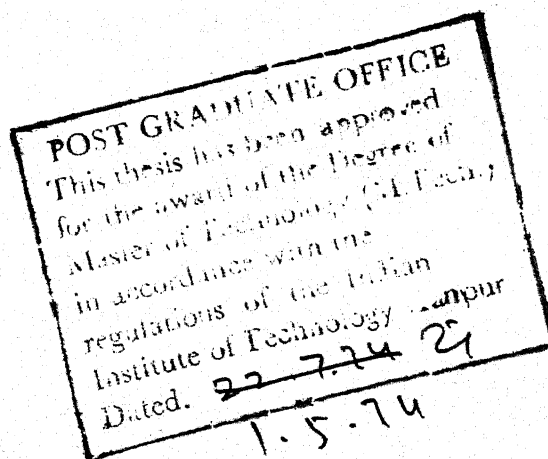 POST GRADUATE OFFICE
This thesis has been approved
for the award of the Degree of
Master of Technology (M.Tech.)
in accordance with the
regulations of the Indian
Institute of Technology Kanpur
Dated. 22.7.74
1.5.74